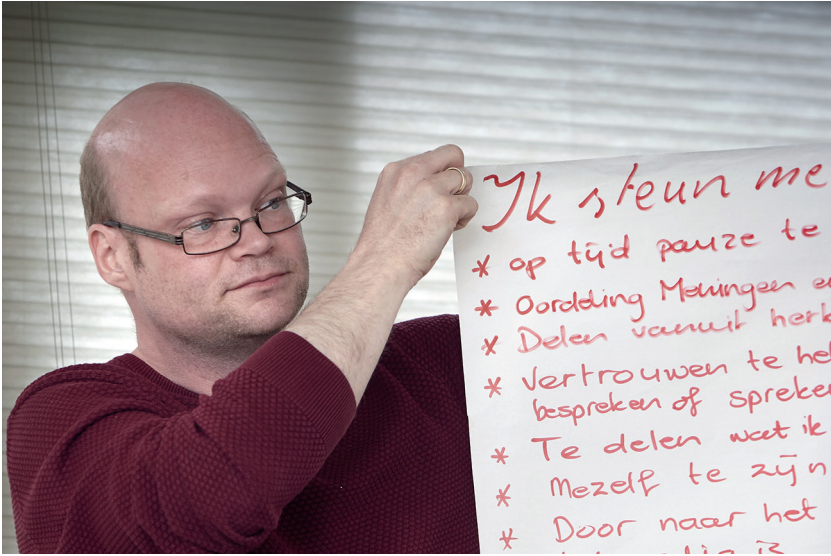 Ik steun me
* op tijd pauze te
* Oordding Meningen e
* Delen vanuit herk
* Vertrouwen te he
bespreken of spreke
* Te delen wat ik
* Mezelf te zijn
* Door naar het